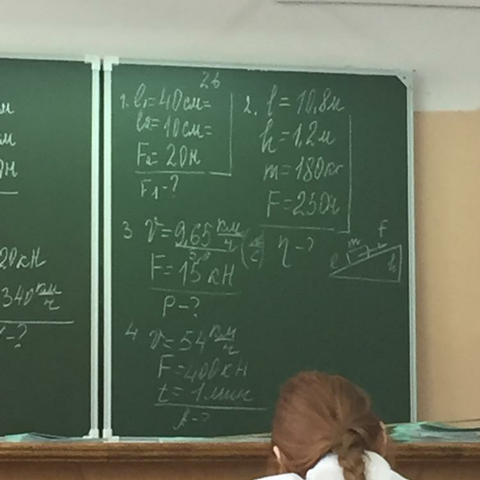 26
1. l₁=40см=
l₂=10см=
F₂=20н
F₁-?
2. l=10,8м
h=1,2м
m=180кг
F=250н
η-?
m F
l h
3 v=9,65 км/ч
F=15кН
P-?
4 v=54 км/ч
F=400кН
t=1мин
20кН
340 км/ч
-?